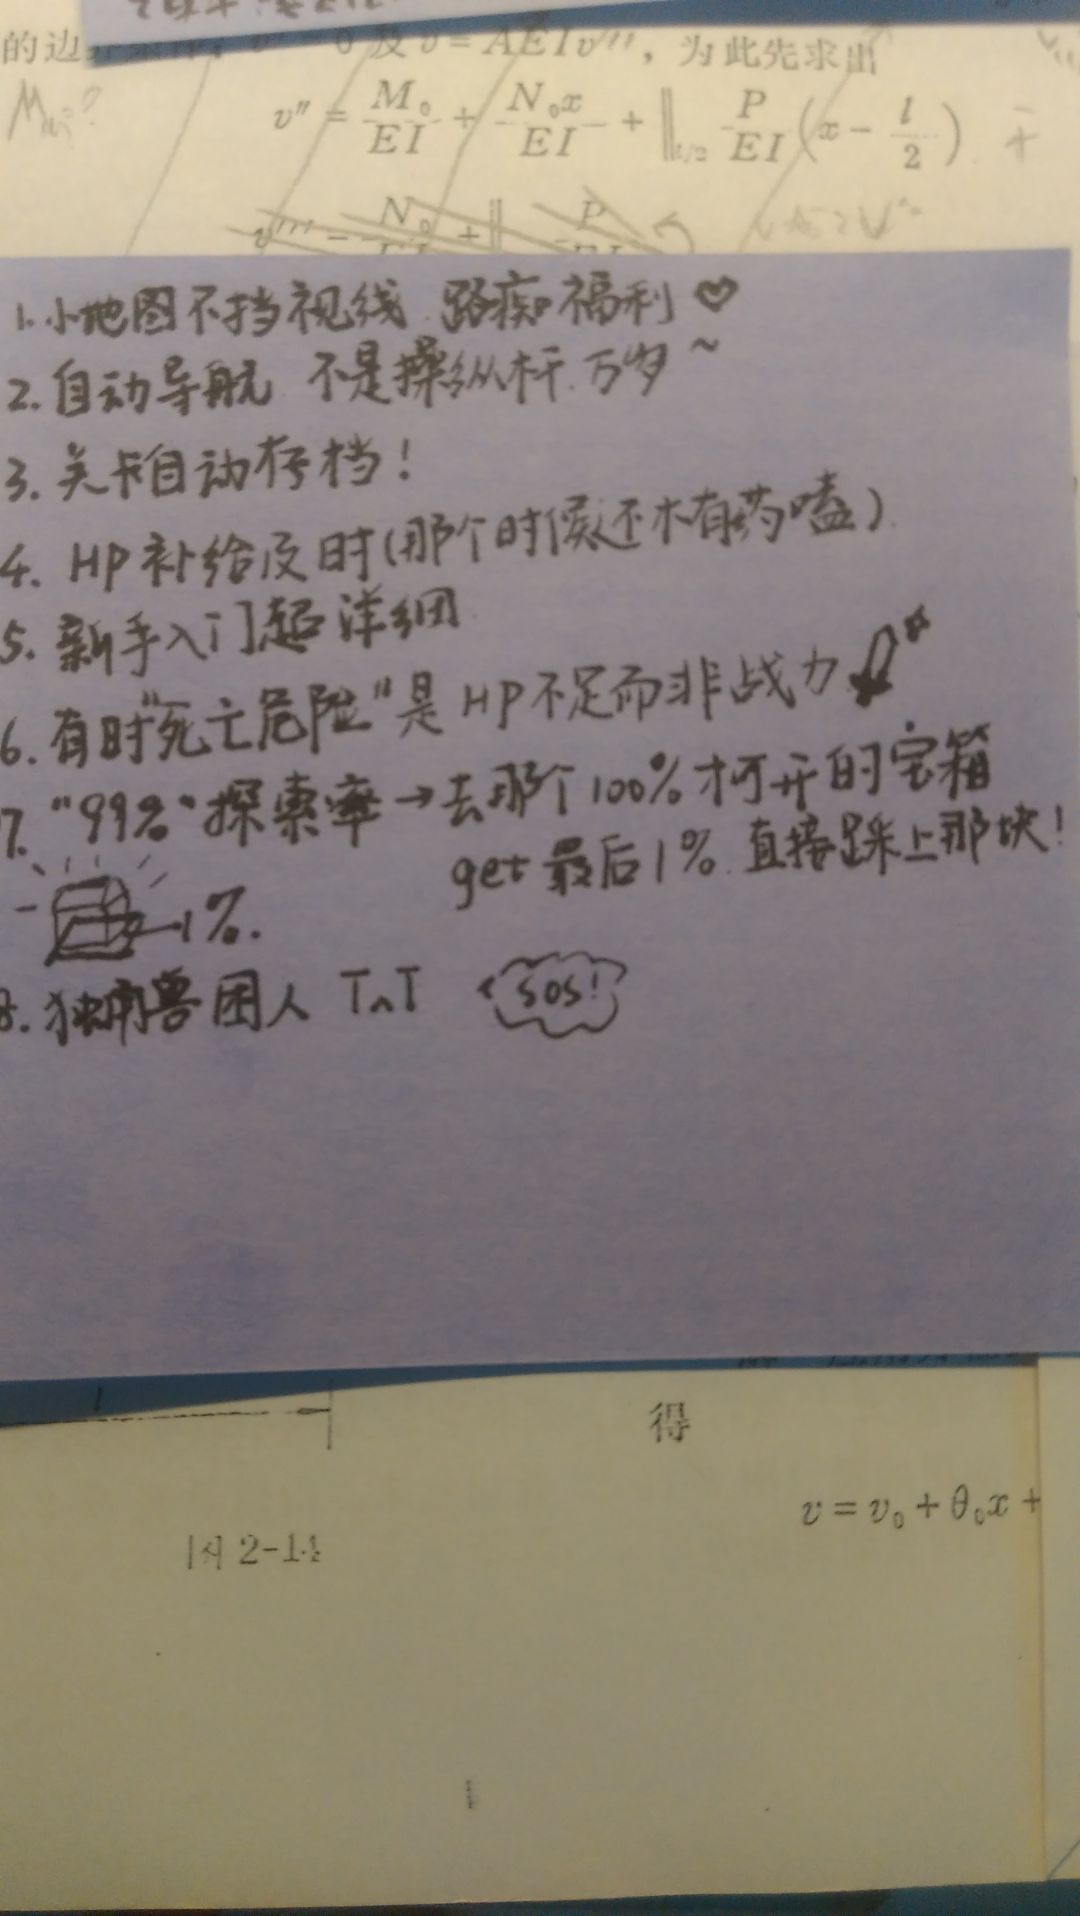 的边界条件：
0及v=AEIv''',为此先求出
v''=M₀/EI+N₀x/EI+‖l/2 P/EI(x-l/2)
v'''=N₀/EI+‖P/EI
1.小地图不挡视线 路痴福利♡
2.自动导航 不是操纵杆.万岁~
3.关卡自动存档!
4.HP补给及时(那个时候还木有药嗑).
5.新手入门超详细
6.有时"死亡危险"是HP不足而非战力
7."99%"探索率→去那个100%才可开的宝箱
get最后1%.直接踩上那块!
1%.
8.独角兽困人 T^T SOS!
l
得
v=v₀+θ₀x+
图2-14